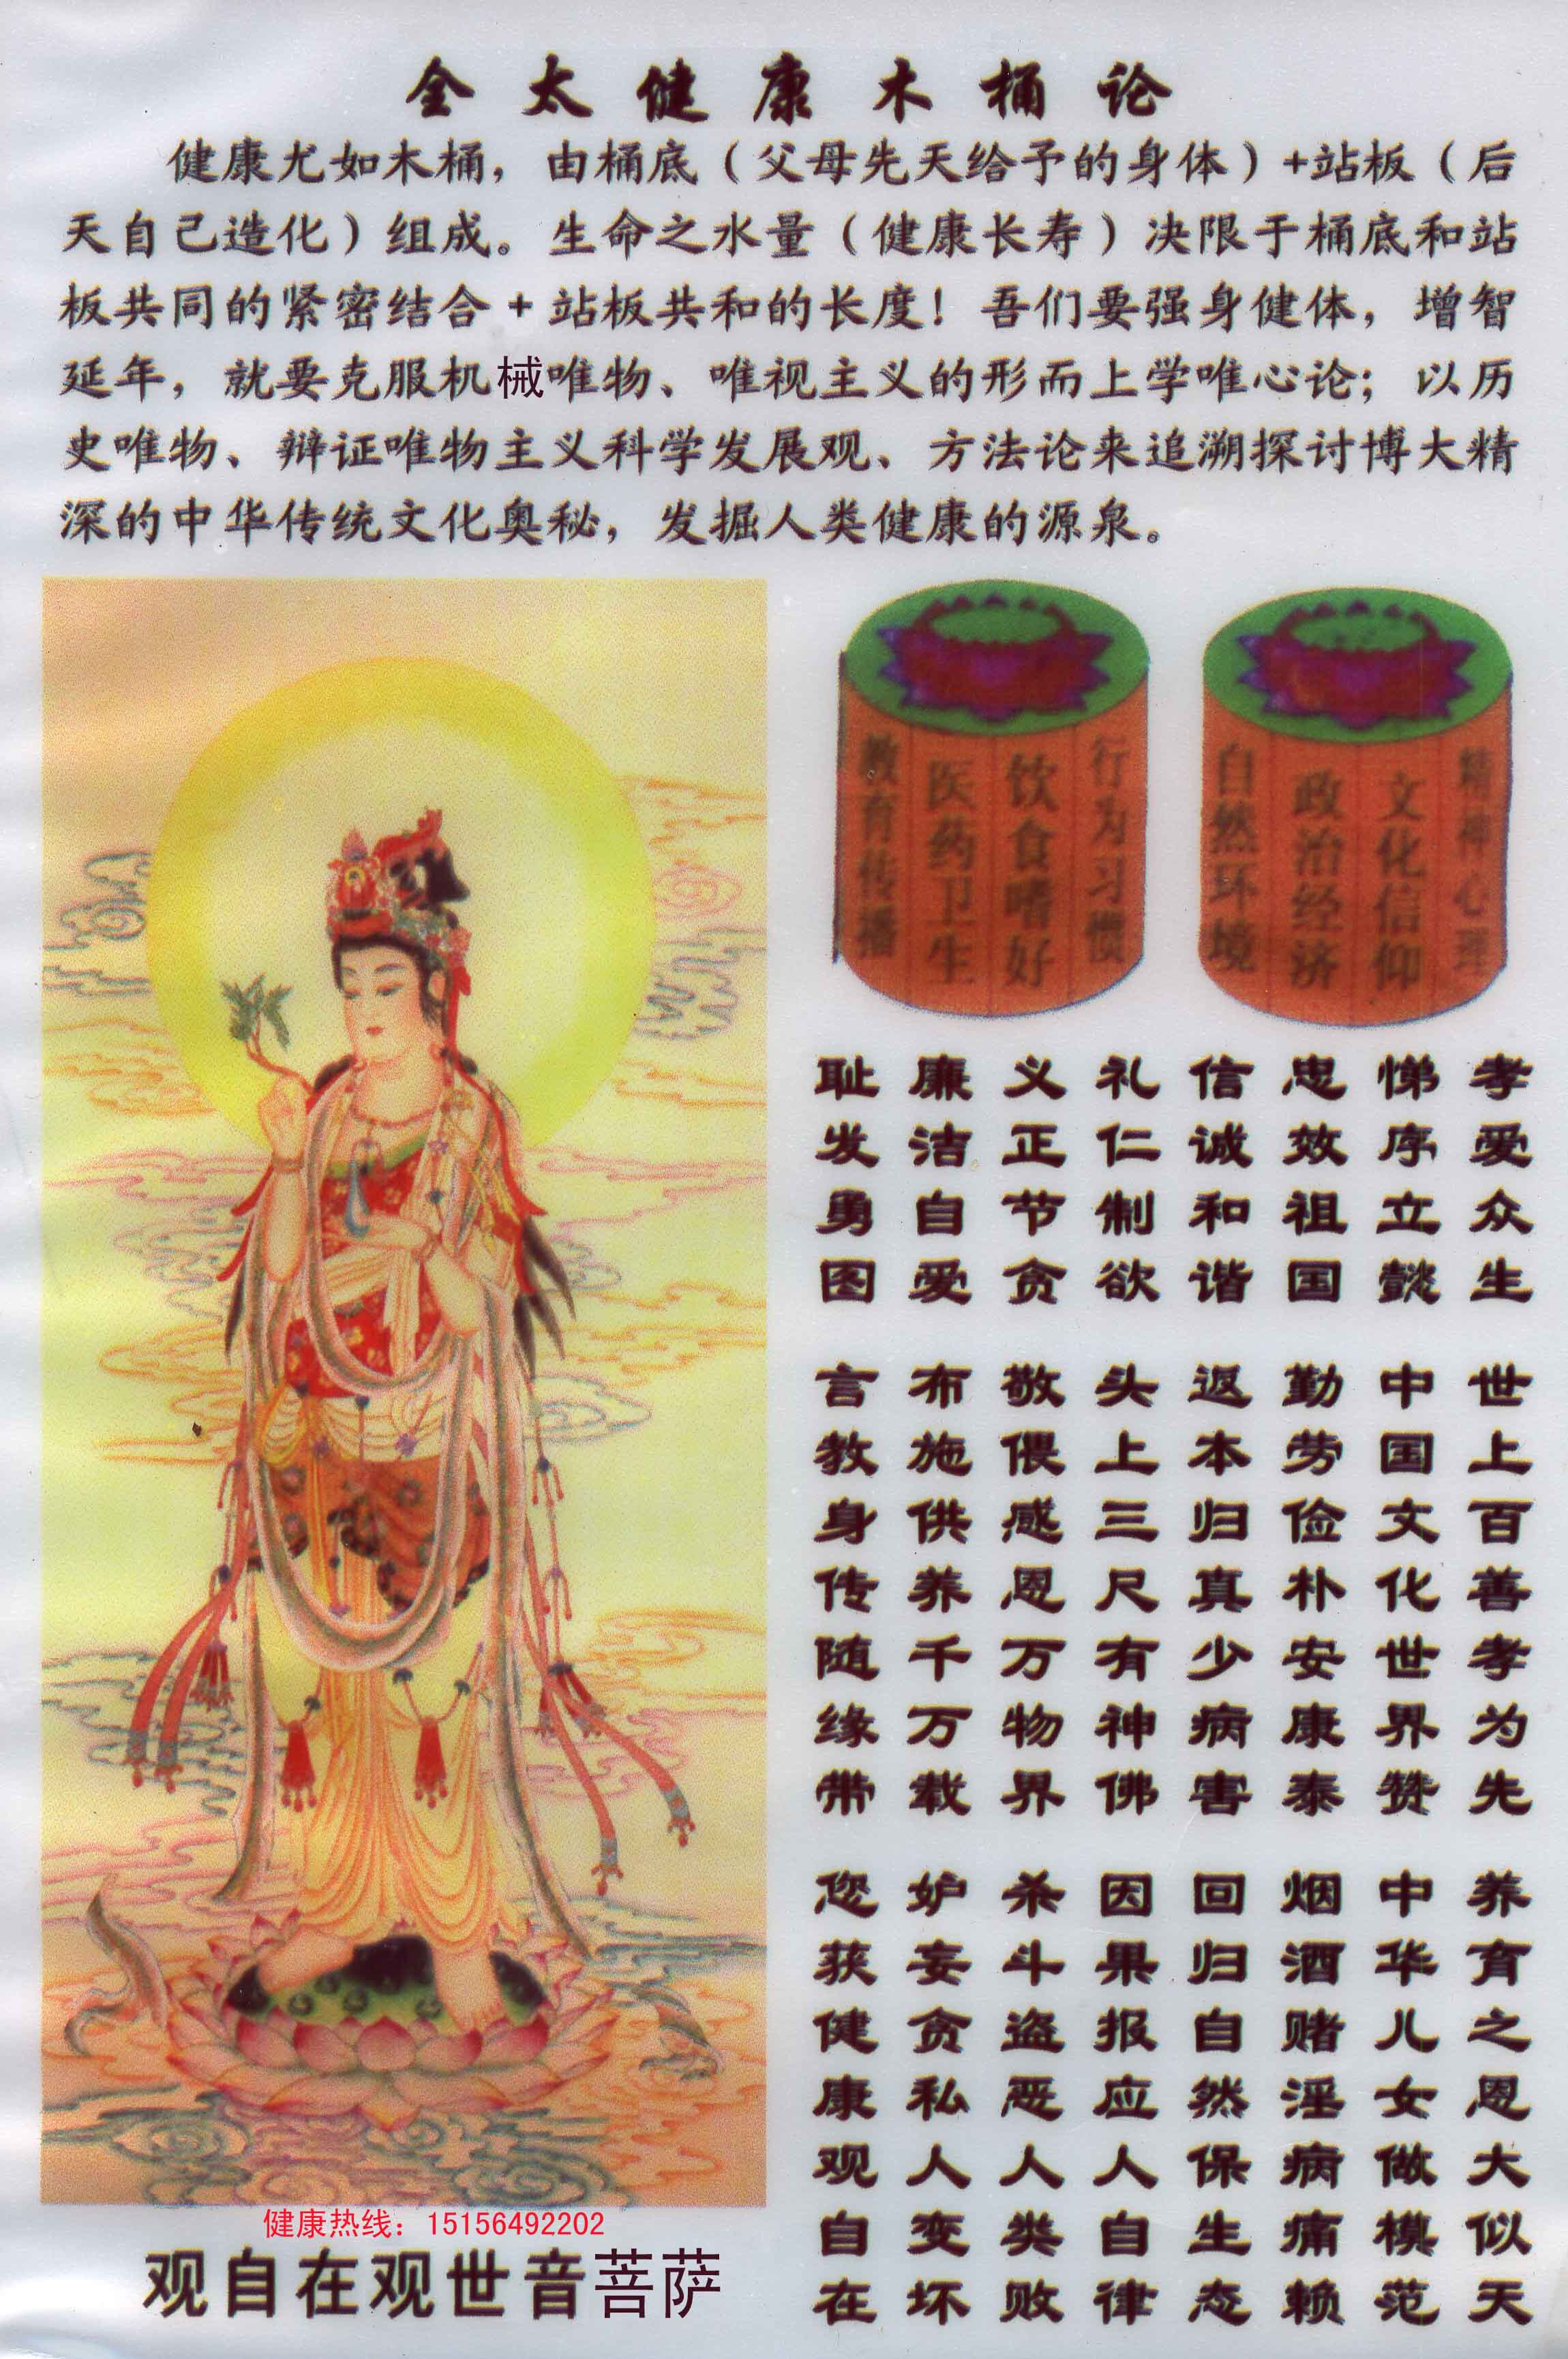 全太健康木桶论
健康尤如木桶，由桶底（父母先天给予的身体）+站板（后
天自己造化）组成。生命之水量（健康长寿）决限于桶底和站
板共同的紧密结合+站板共和的长度！吾们要强身健体，增智
延年，就要克服机械唯物、唯视主义的形而上学唯心论；以历
史唯物、辩证唯物主义科学发展观、方法论来追溯探讨博大精
深的中华传统文化奥秘，发掘人类健康的源泉。
教育传播
医药卫生
饮食嗜好
行为习惯
自然环境
政治经济
文化信仰
精神心理
孝爱众生
悌序立懿
忠效祖国
信诚和谐
礼仁制欲
义正节贪
廉洁自爱
耻发勇图
世上百善孝为先
中国文化世界赞
勤劳俭朴安康泰
返本归真少病害
头上三尺有神佛
敬偎感恩万物界
布施供养千万载
言教身传随缘带
养育之恩大似天
中华儿女做模范
烟酒赌淫病痛赖
回归自然保生态
因果报应人自律
杀斗盗恶人类败
妒妄贪私人变坏
您获健康观自在
健康热线：15156492202
观自在观世音菩萨